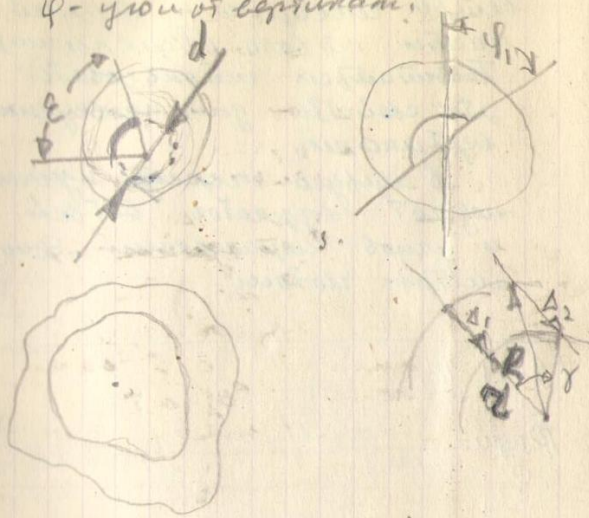 φ - угол от вертикали.
d
φ₁
ε
Δ₁
Δ₂
R
γ